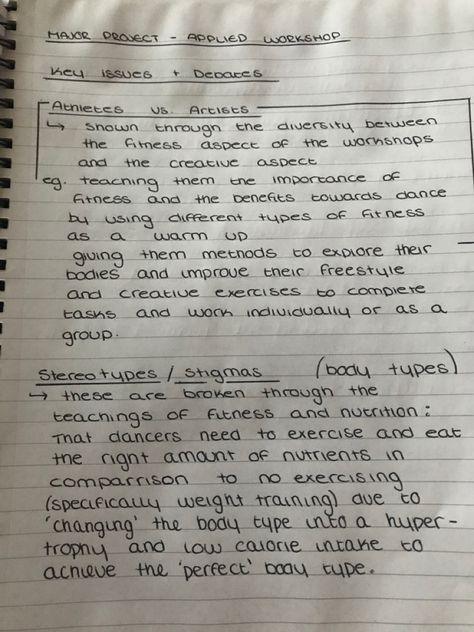 MAJOR PROJECT - APPLIED WORKSHOP
Key issues + Debates
Athletes vs. Artists
↳ shown through the diversity between
the fitness aspect of the workshops
and the creative aspect
eg. teaching them the importance of
fitness and the benefits towards dance
by using different types of fitness
as a warm up
giving them methods to explore their
bodies and improve their freestyle
and creative exercises to complete
tasks and work individually or as a
group.
Stereotypes / stigmas (body types)
→ these are broken through the
teachings of fitness and nutrition:
That dancers need to exercise and eat
the right amount of nutrients in
comparrison to no exercising
(specifically weight training) due to
'changing' the body type into a hyper-
trophy and low calorie intake to
achieve the 'perfect' body type.